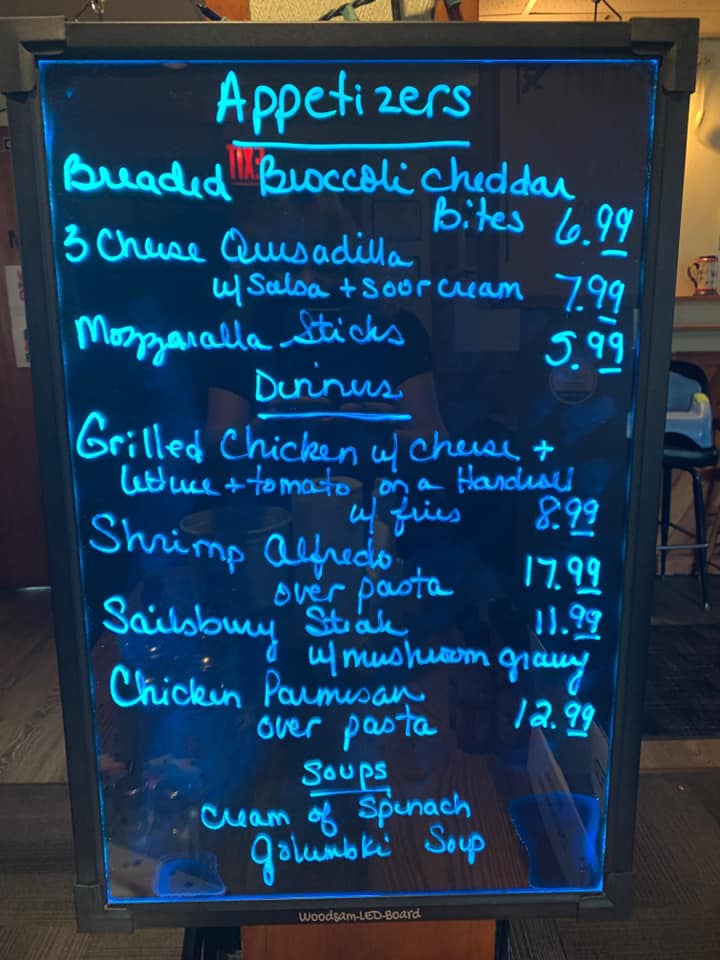 Appetizers
Breaded Broccoli cheddar
Bites 6.99
3 Cheese Quesadilla
w/ Salsa + sour cream 7.99
Mozzaralla Sticks 5.99
Dinners
Grilled Chicken w/ cheese +
lettuce + tomato on a Hardroll
w/ fries 8.99
Shrimp Alfredo
over pasta 17.99
Sailsbury Steak 11.99
w/ mushroom gravy
Chicken Parmesan
over pasta 12.99
Soups
Cream of Spinach
golumbki Soup
Woodsam-LED-Board